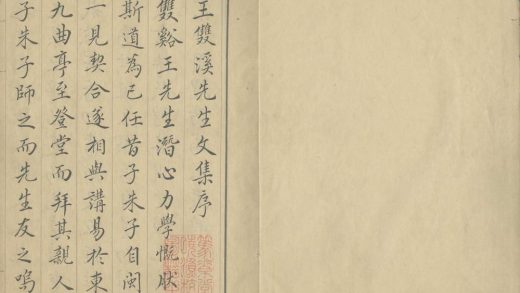 王雙溪先生文集序
雙谿王先生潛心力學慨肰
斯道為己任昔子朱子自閩
一見契合遂相與講易於東
九曲亭至登堂而拜其親人
子朱子師之而先生友之嗚